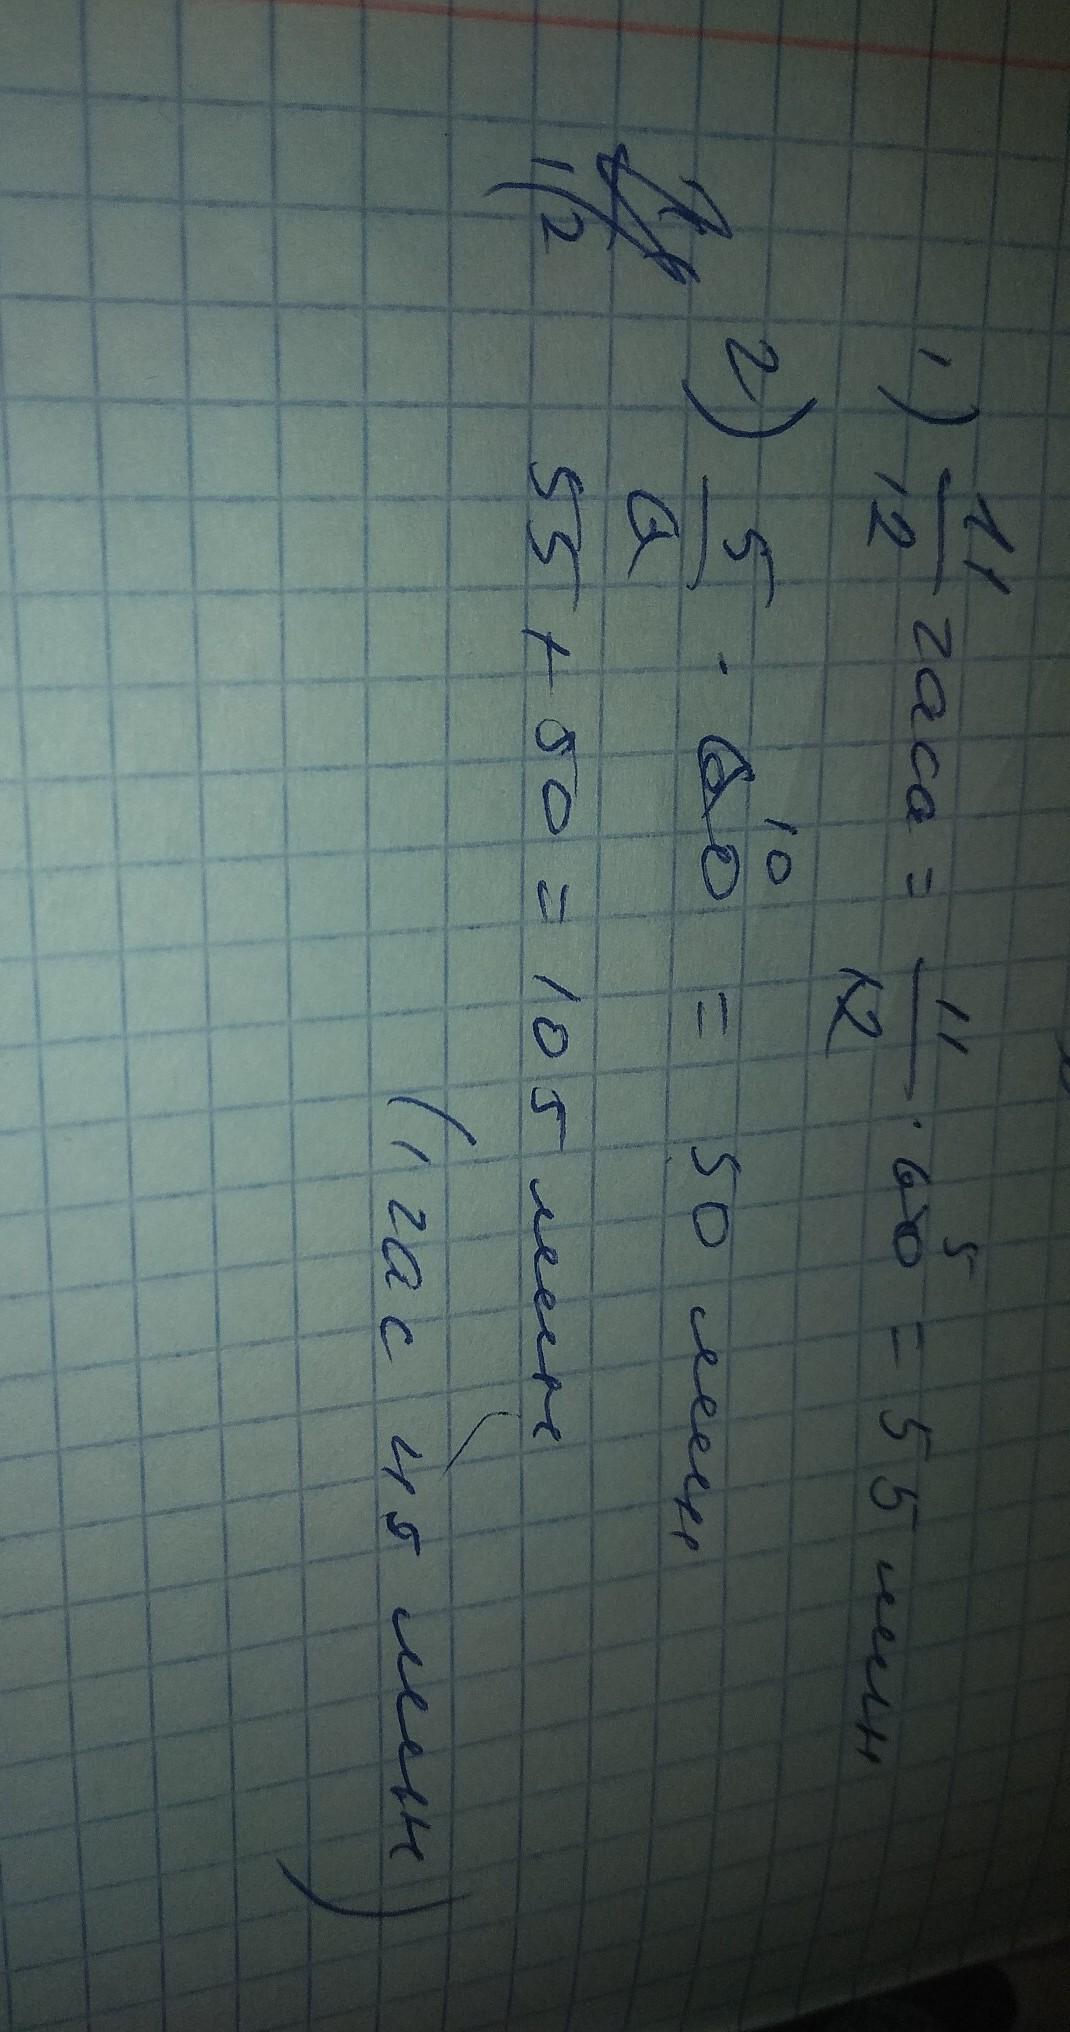 1) 11/12 часа = 11/12 · 60 5 = 55 мин
2) 5/6 · 60 10 = 50 мин
1/2 55 + 50 = 105 мин
(1 час 45 мин)